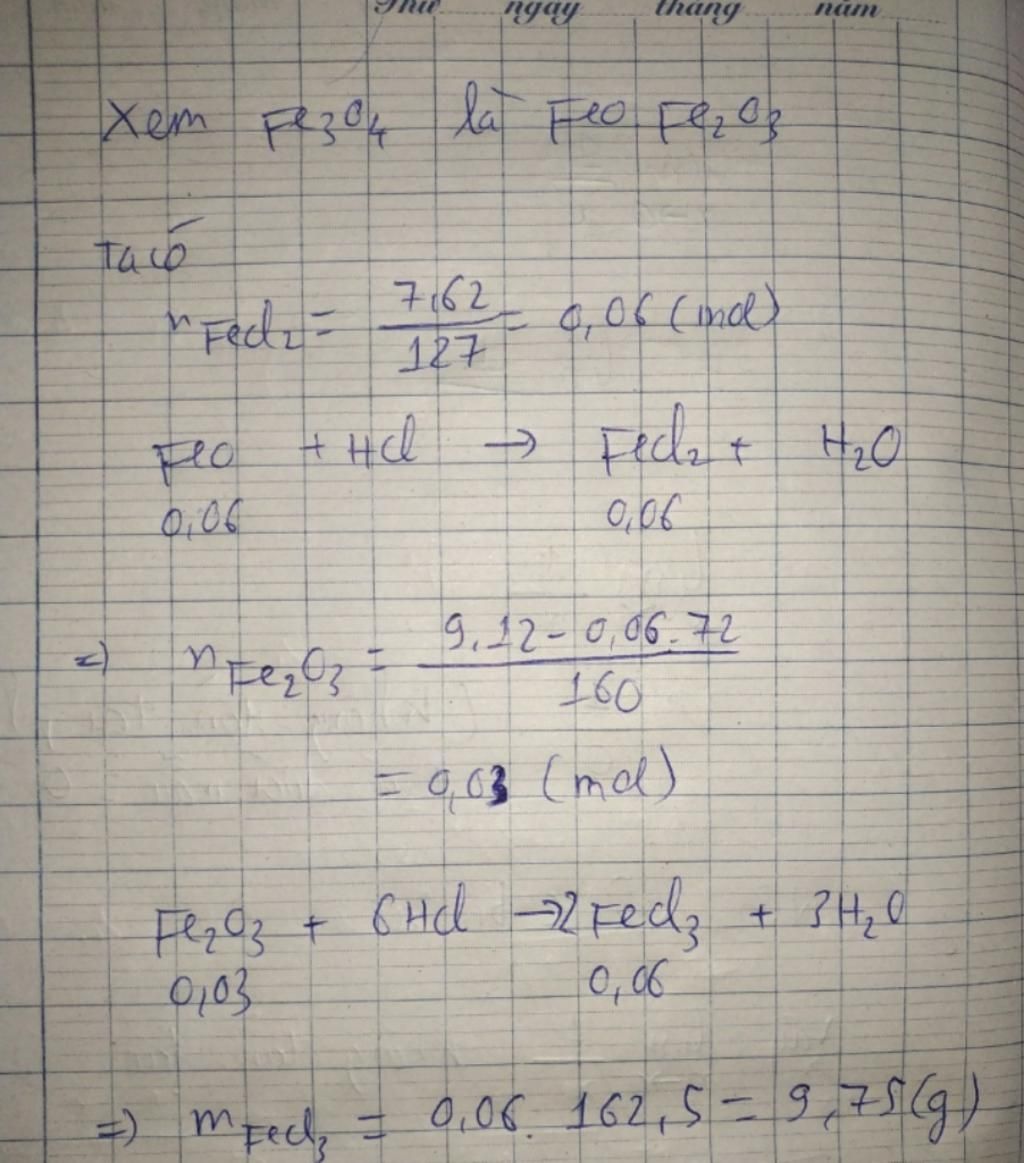 Thứ ngày tháng năm
Xem Fe₃O₄ là FeO Fe₂O₃
Ta có
n FeCl₂ = 7,62/127 = 0,06 (mol)
FeO + HCl → FeCl₂ + H₂O
0,06 0,06
=) n Fe₂O₃ = 9,12 - 0,06.72/160
= 0,03 (mol)
Fe₂O₃ + 6HCl → 2FeCl₃ + 3H₂O
0,03 0,06
=) m FeCl₃ = 0,06. 162,5 = 9,75(g)